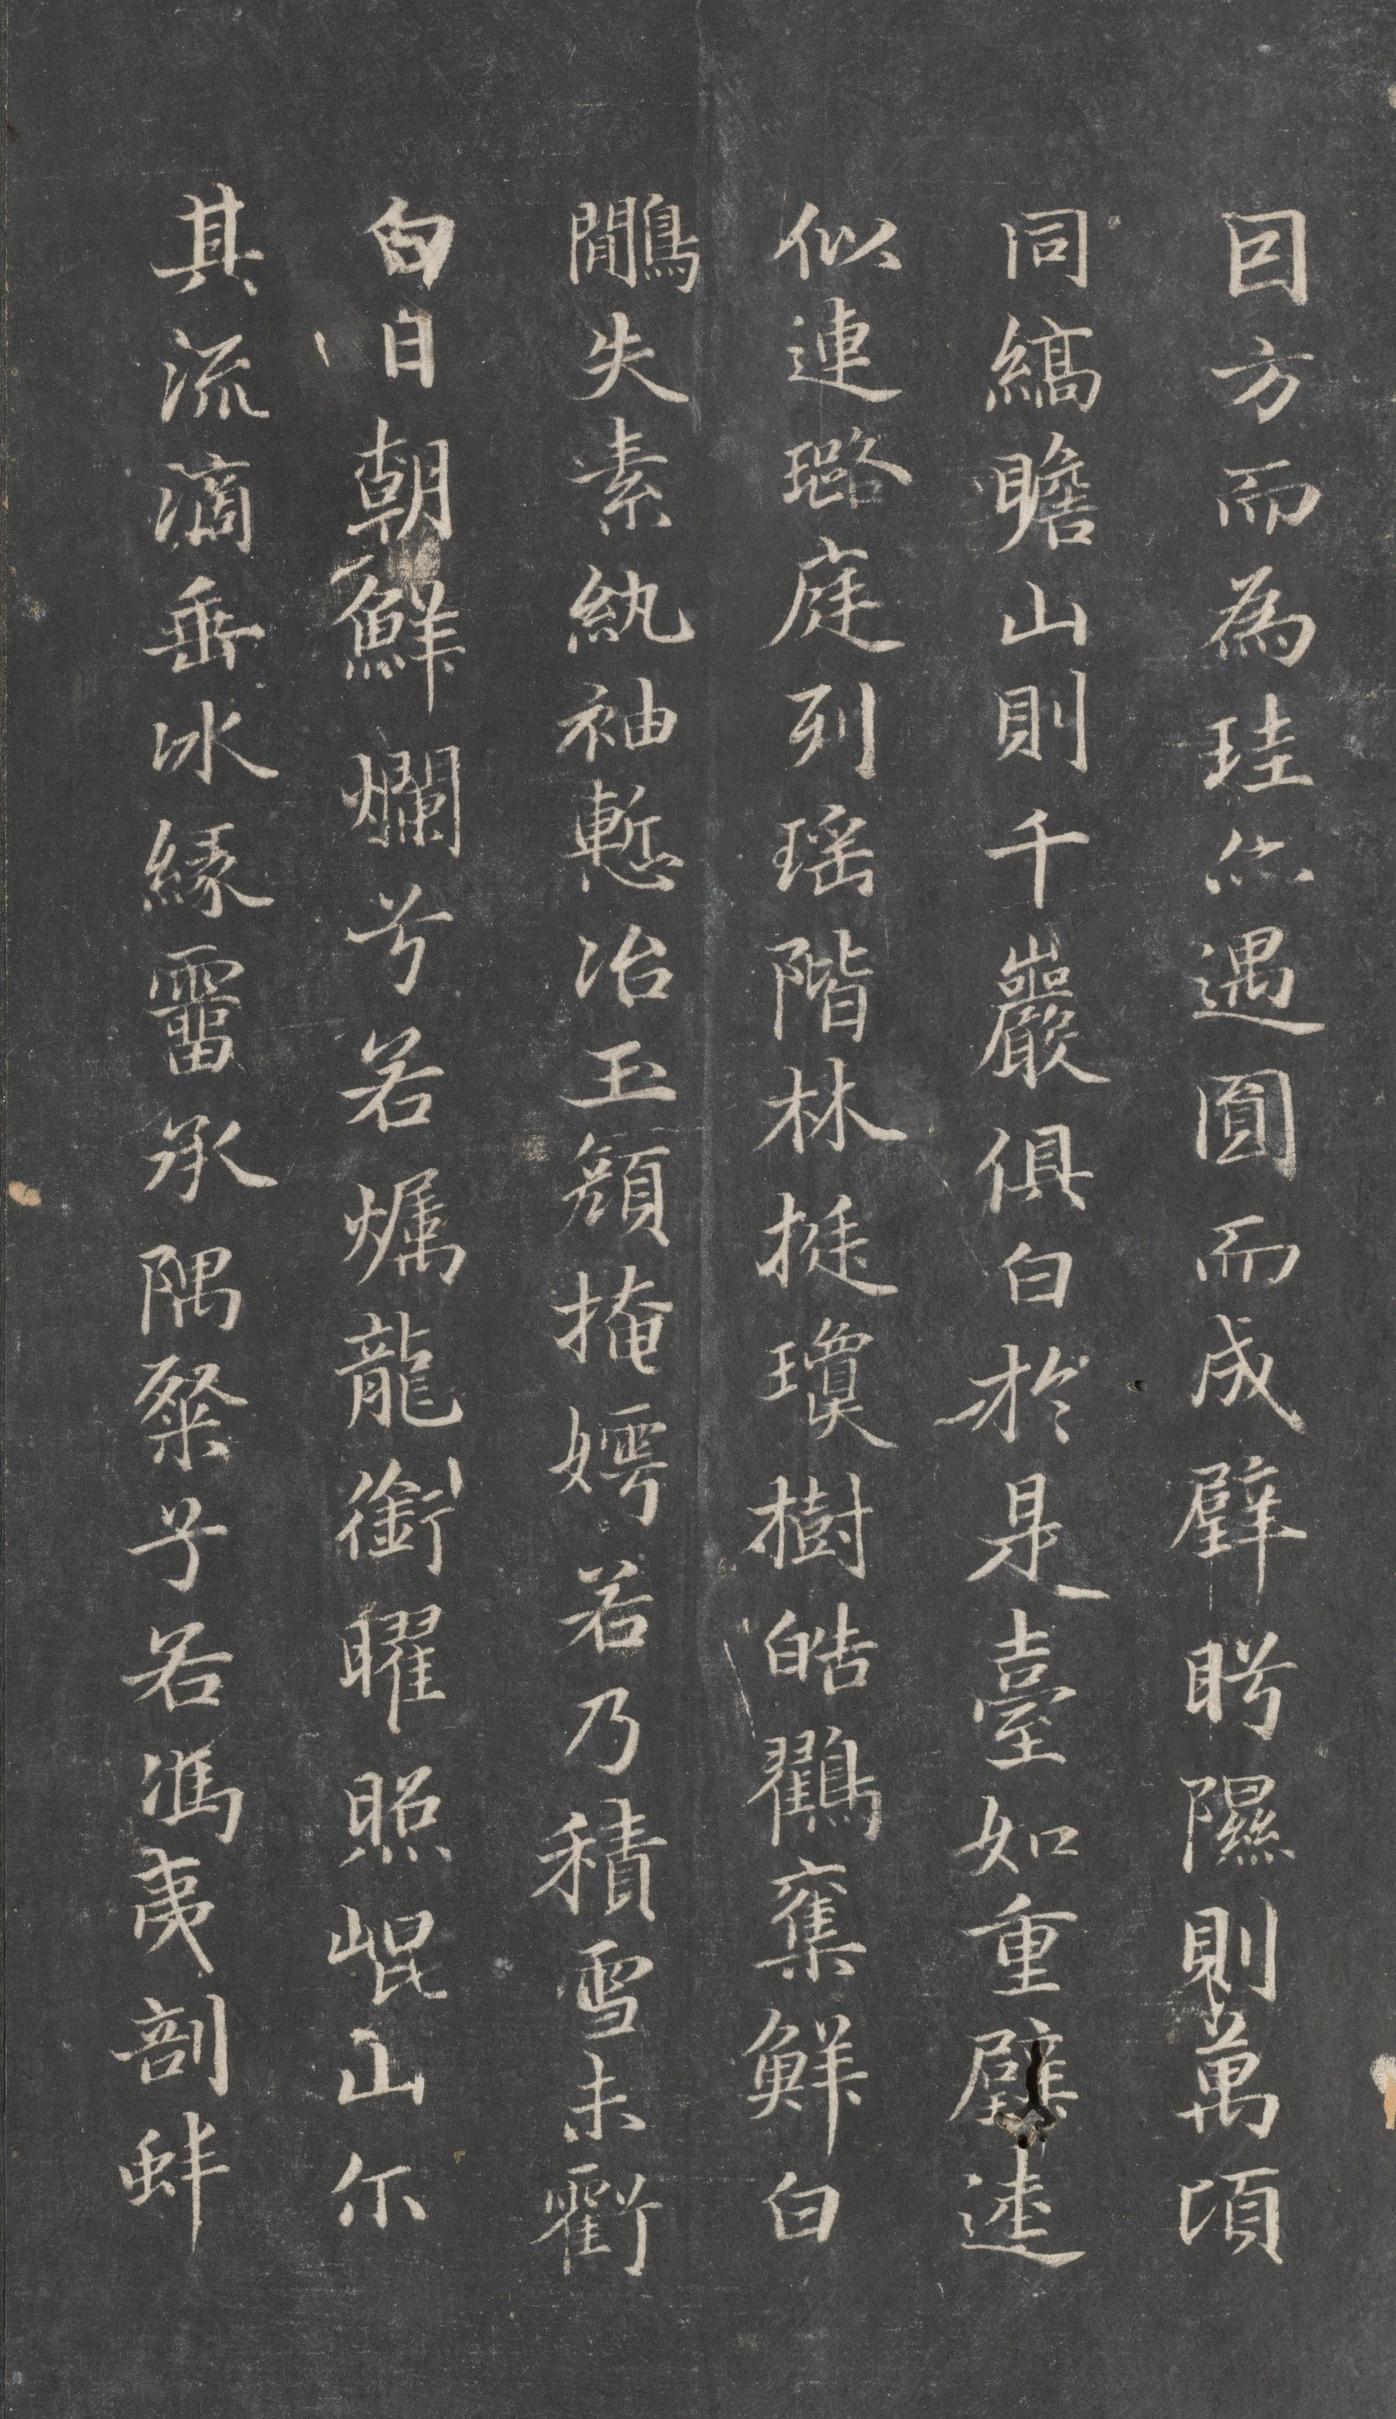 因方而為珪亦遇圓而成璧眄隰則萬頃
同縞瞻山則千巖俱白於是臺如重璧逵
似連璐庭列瑶階林挺瓊樹皓鶴奪鮮白
鷳失素紈袖慙冶玉顔掩嫮若乃積雪未虧
白日朝鮮爛兮若爥龍銜曜照崐山尒
其流滴垂冰緣霤承隅粲兮若馮夷剖蚌